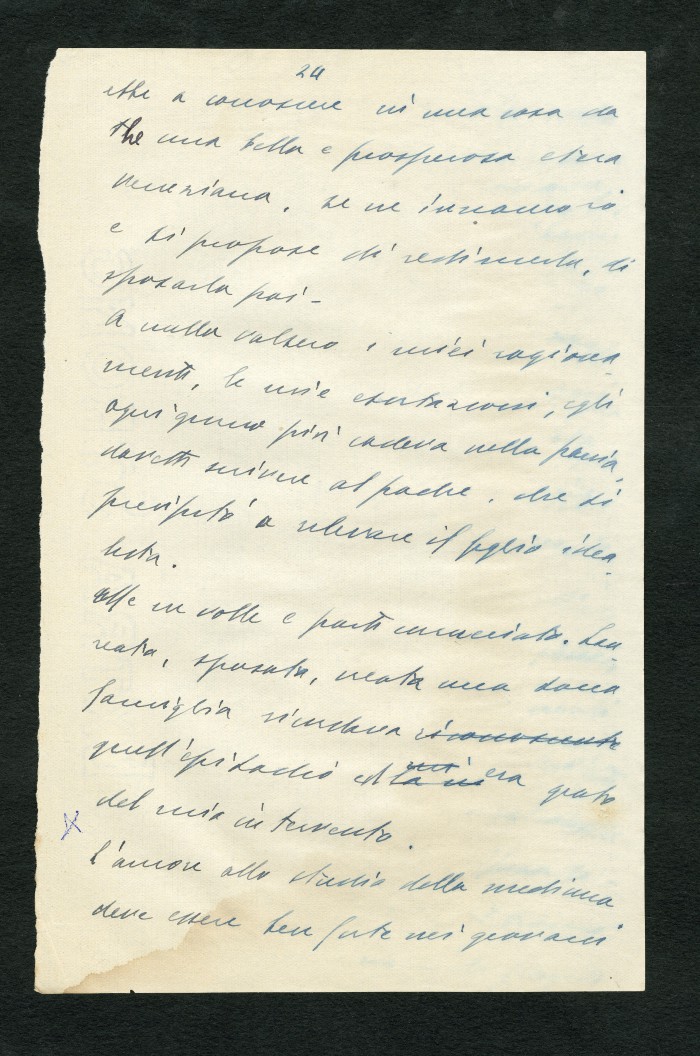 24
ebbe a conoscere in una casa da
the una bella e prosperosa etèra
veneziana, se ne innamorò
e si propose di redimerla, di
sposarla poi -
A nulla valsero i miei ragiona-
menti, le mie esortazioni, egli
ogni giorno più cadeva nella pania,
dovetti scrivere al padre, che si
precipitò a rilevare il figlio idea-
lista.
Me ne volle e partì crucciato. Lau-
reato, sposato, creata una sana
famiglia ricordava riconoscente
quell'episodio ed mi era grato
del mio intervento.
L'amore allo studio della medicina
deve essere ben forte nei giovani